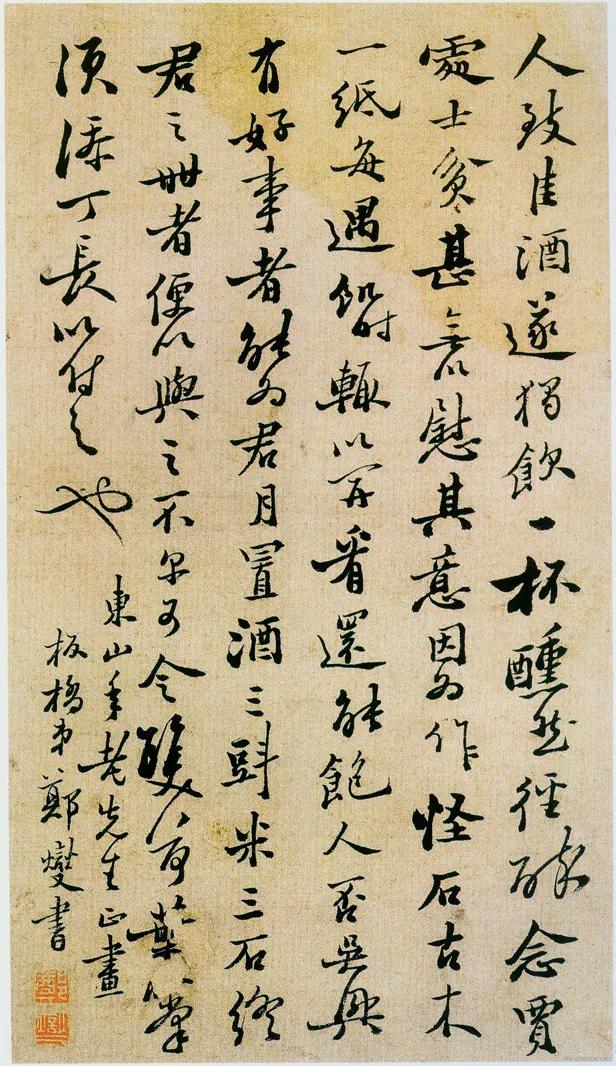 人致佳酒遂獨飲一杯醺然徑醉念賈
處士貧甚無以慰其意因為作怪石古木
一紙每遇飢時輒以開看還能飽人否吳興
有好事者能為君月置酒三斗米三石終
君之世者便以與之不尔可令雙荷葉掌
須添丁長以付之也
東山年老先生正畫
板橋弟鄭燮書